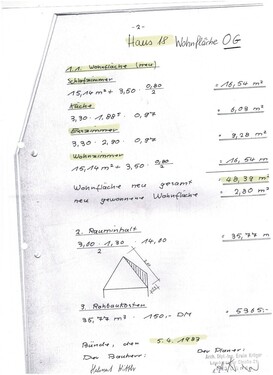 - 2 -
Haus 18 Wohnfläche OG
1.1. Wohnfläche (neu)
Schlafzimmer
15,14 m² + 3,50 · 0,80/2 = 16,54 m²
Küche
3,30 · 1,88⁵ · 0,97 = 6,03 m²
Esszimmer
3,30 · 2,90 · 0,97 = 9,28 m²
Wohnzimmer
15,14 m² + 3,50 · 0,80/2 = 16,54 m
Wohnfläche neu gesamt = 48,39 m²
neu gewonnene Wohnfläche = 2,80 m²
2. Rauminhalt
3,60 · 1,30 / 2 · 14,00 = 35,77 m
3. Rohbaukosten
35,77 m3 · 150,- DM = 5365,-
Bünde, den 5.4.1987
Der Bauherr: Der Planer:
Helmut